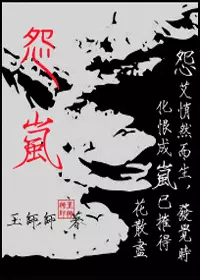 怨嵐
怨艾悄然而生,發覺時
化恨成嵐已摧得
花散盡
王師師 著